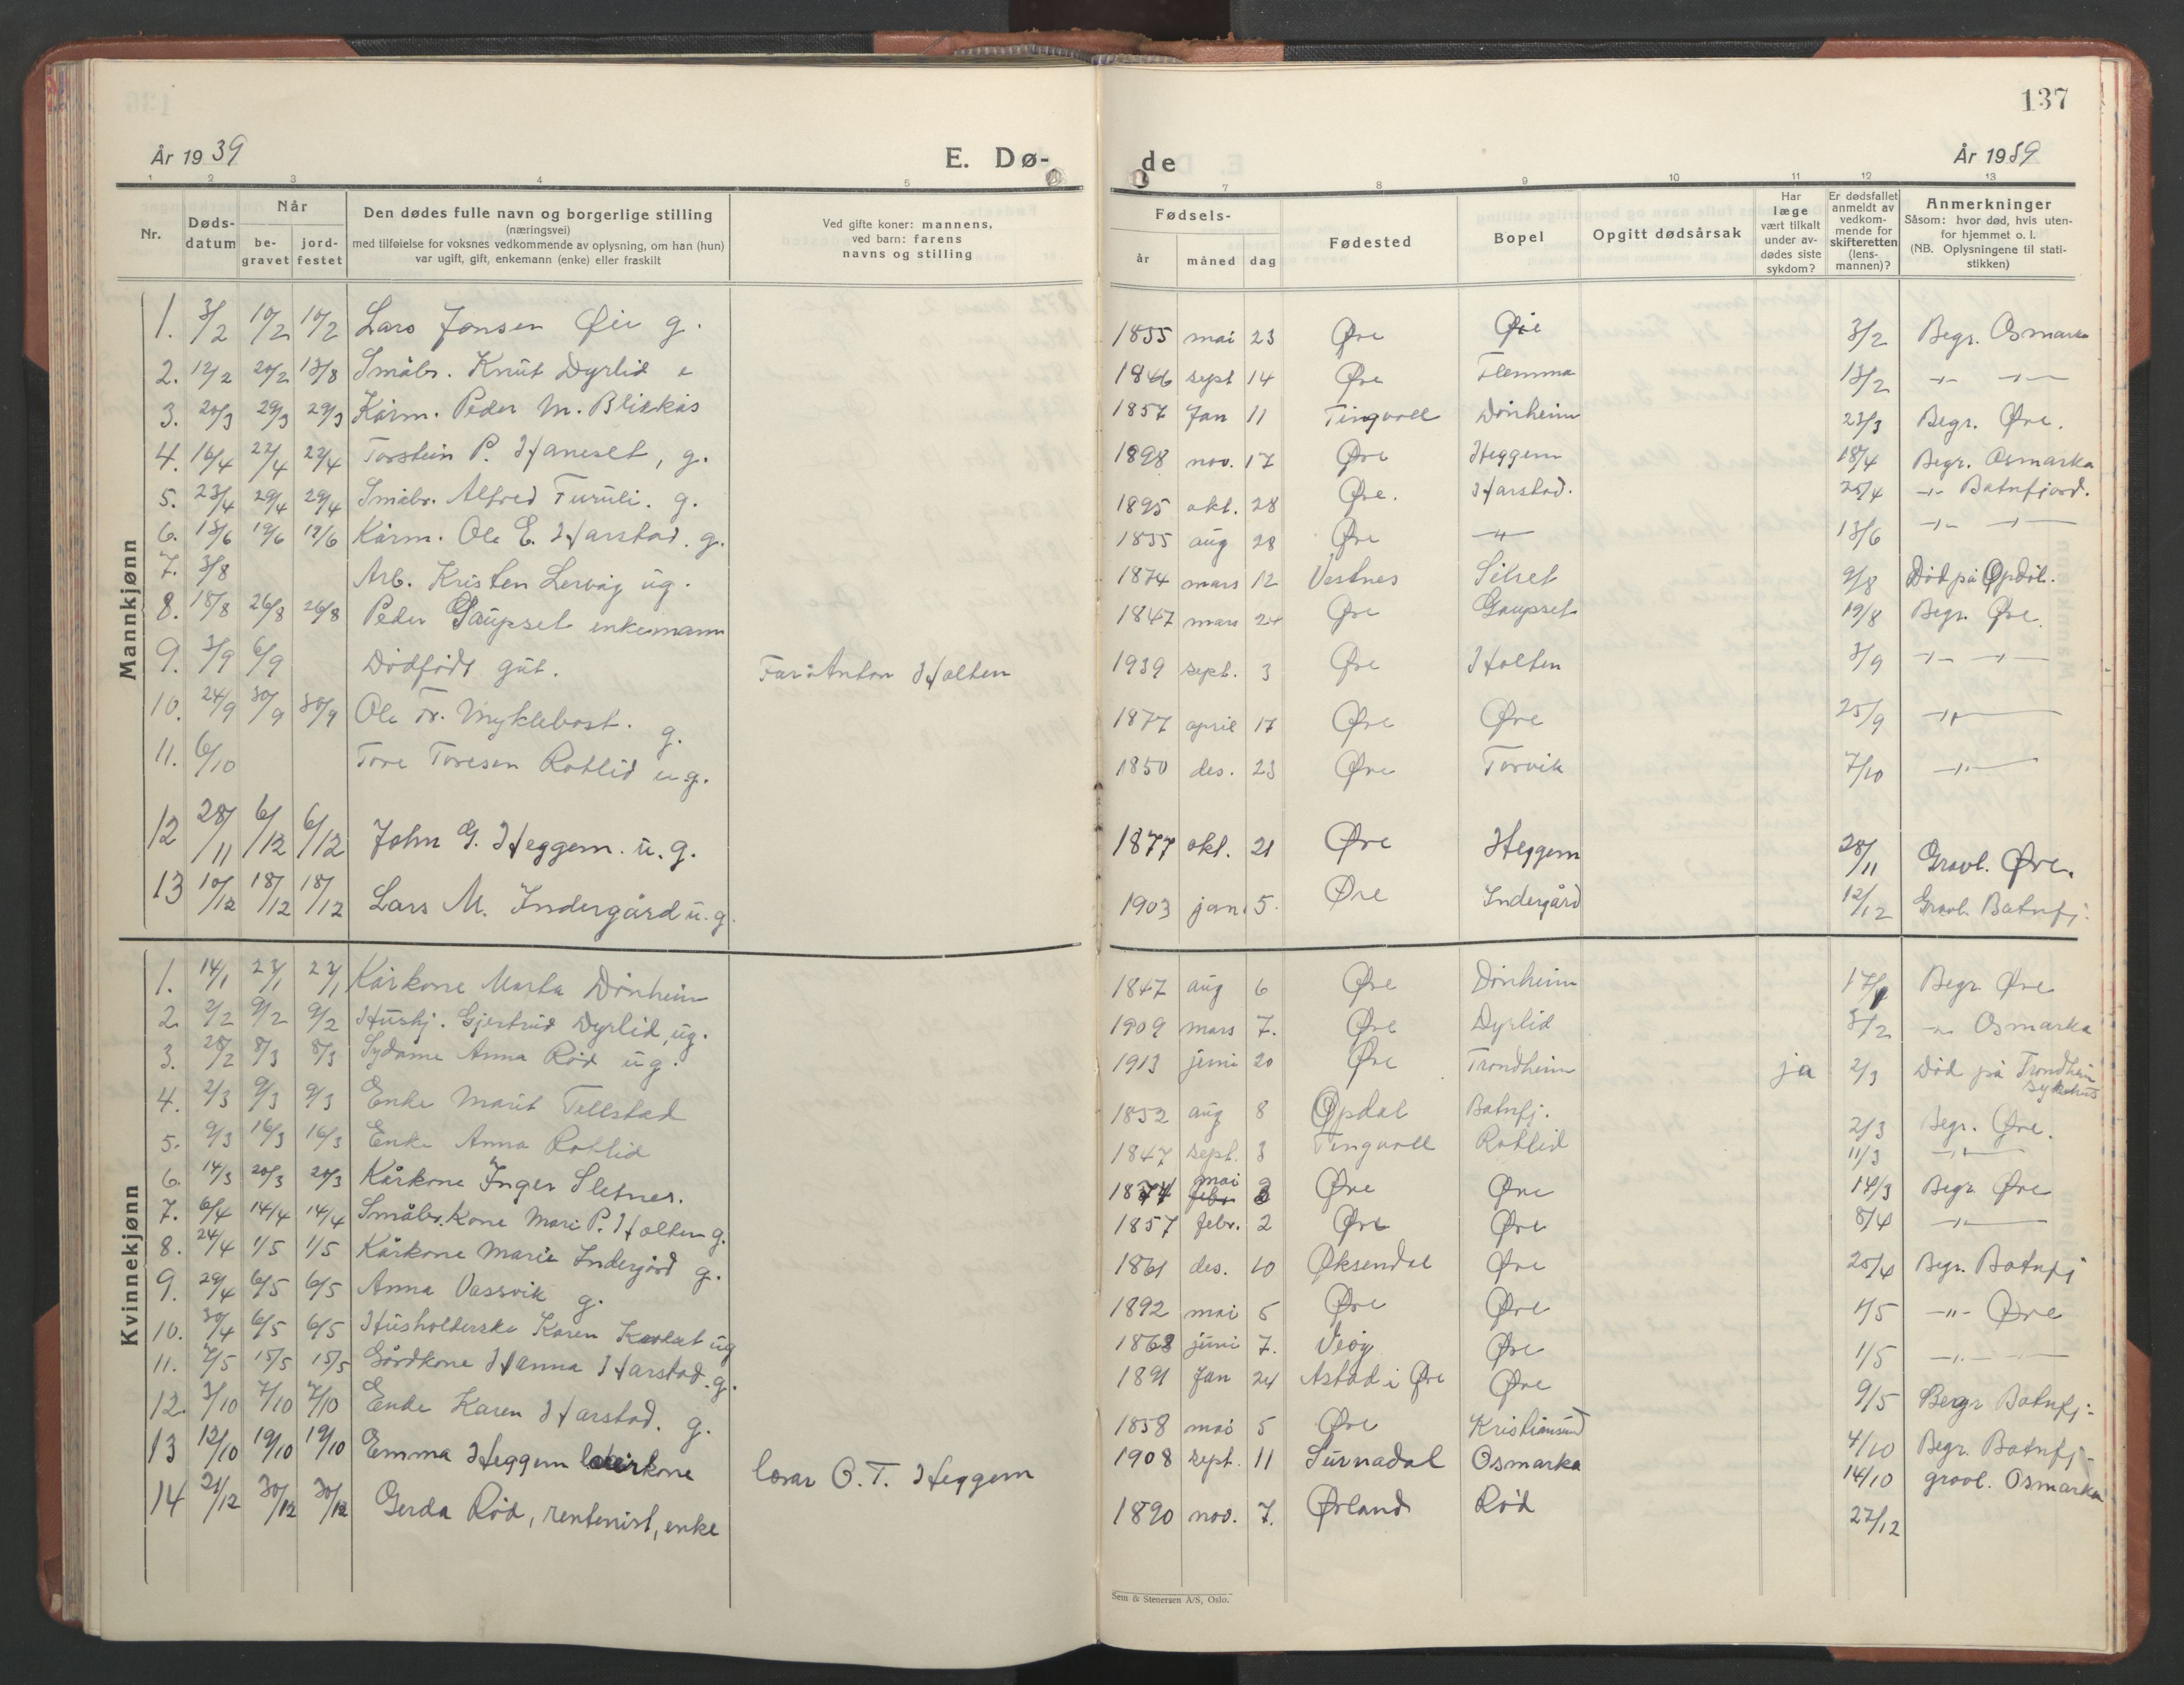 137
År 1939
E. Dø-
de
År 1939
1 2 3 4 5
7 8 9 10 11 12 13
Nr.
Døds-
datum
Når
be-
gravet
jord-
festet
Den dødes fulle navn og borgerlige stilling
(næringsvei)
med tilføielse for voksnes vedkommende av oplysning, om han (hun)
var ugift, gift, enkemann (enke) eller fraskilt
Ved gifte koner: mannens,
ved barn: farens
navns og stilling
Fødsels-
år
måned
dag
Fødested
Bopel
Opgitt dødsårsak
Har
læge
vært tilkalt
under av-
dødes siste
sykdom?
Er dødsfallet
anmeldt av
vedkom-
mende for
skifteretten
(lens-
mannen)?
Anmerkninger
Såsom: hvor død, hvis uten-
for hjemmet o. l.
(NB. Oplysningene til stati-
stikken)
Mannkjønn
1. 3/2 10/2 10/2 Lars Jonsen Øie g. 1855 mai 23 Øre Øie 3/2 Begr. Osmarka
2. 12/2 20/2 13/8 Småbr. Knut Dyrlid e 1846 sept 14 Øre Flemma 13/2 -"- -"-
3. 20/3 29/3 29/3 Kårm. Peder M. Blikkås 1857 Jan 11 Tingvoll Dønheim 23/3 Begr. Øre.
4. 16/4 22/4 22/4 Torstein P. Haneset, g. 1898 nov. 17 Øre Heggem 18/4 Begr. Osmarka
5. 23/4 29/4 29/4 Småbr. Alfred Furuli. g. 1895 okt. 28 Øre. Harstad. 25/4 -"- Batnfjord.
6. 13/6 19/6 19/6 Kårm. Ole E. Harstad. g. 1855 aug 28 Øre -"- 13/6 -"- -"-
7. 3/8 Arb. Kristen Lervåg ug. 1874 mars 12 Vestnes Silset 9/8 Død på Opdøl.
8. 18/8 26/8 26/8 Peder Gaupset enkemann 1847 mars 24 Øre Gaupset 19/8 Begr. Øre.
9. 3/9 6/9 Dødfødt gut. Far: Anton Holten 1939 sept. 3 Øre Holten 3/9 -"- -"-
10. 24/9 30/9 30/9 Ole Tr. Myklebost. g. 1877 april 17 Øre Øre 25/9 -"-
11. 6/10 Tore Toresen Rotlid u.g. 1850 des. 23 Øre Torvik 7/10 -"-
12 28/11 6/12 6/12 John G. Heggem. u.g. 1877 okt. 21 Øre Heggem 28/11 Gravl. Øre.
13 10/12 18/12 18/12 Lars M. Indergård u.g. 1903 jan. 5. Øre Indergård 12/12 Gravl. Batnfj.
Kvinnekjønn
1. 14/1 23/1 23/1 Kårkone Marta Dønheim 1847 aug 6 Øre Dønheim 17/1 Begr Øre
2. 2/2 9/2 9/2 Hushj. Gjertrud Dyrlid, ug. 1909 mars 7. Øre Dyrlid 3/2 -"- Osmarka
3. 28/2 8/3 8/3 Sydame Anna Rød ug. 1913 juni 20 Øre Trondheim ja 2/3 Død på Trondheim
sykehus
4. 2/3 9/3 9/3 Enke Marit Tellstad 1852 aug 8 Opdal Batnfj. 2/3 Begr. Øre.
5. 9/3 16/3 16/3 Enke Anna Rotlid 1847 sept. 3 Tingvoll Rotlid 11/3 -"-
6. 14/3 20/3 20/3 Kårkone Inger Sletnes. 1874 mai Øre Øre 14/3 Begr Øre
7. 6/4 14/4 14/4 Småbr. Kone Mari P. Holten g. 1857 febr. 2 Øre Øre 8/4 -"-
8. 24/4 1/5 1/5 Kårkone Marie Indergård g. 1861 des. 10 Øksendal Øre 25/4 Begr. Batnfj
9. 29/4 6/5 6/5 Anna Vassvik g. 1892 mai 5 Øre Øre 1/5 -"- Øre
10. 30/4 6/5 6/5 Husholderske Karen ug 1868 juni 7. Veøy Øre 1/5 -"-
11. 7/5 15/5 15/5 Gårdkone Hanna Harstad. g. 1891 Jan 24 Astad i Øre Øre 9/5 Begr Batnfj.
12. 3/10 7/10 7/10 Enke Karen Harstad. g. 1858 mai 5 Øre Kristiansund 4/10 Begr. Batnfj.
13 12/10 19/10 19/10 Emma Heggem lærerkone lærar O. T. Heggem 1908 sept. 11 Surnadal Osmarka 14/10 gravl. Osmarka
14 21/12 30/12 30/12 Gerda Rød, rentenist, enke 1890 nov. 7. Ørland Rød 27/12
Sem & Stenersen A/S, Oslo.